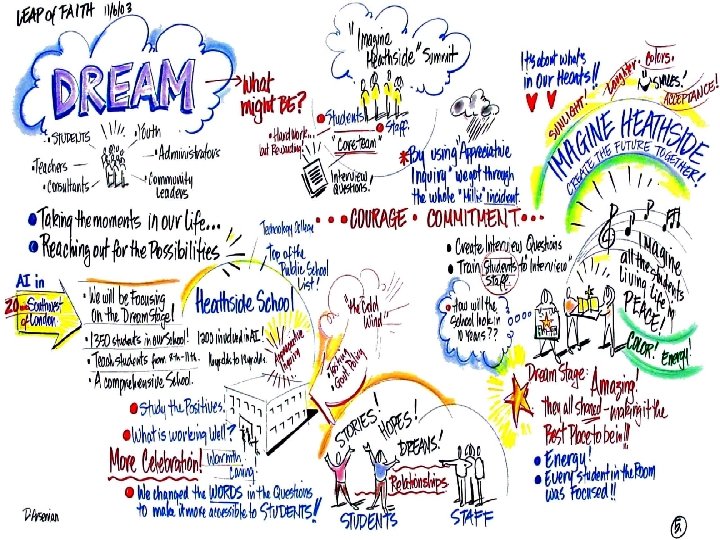 LEAP of FAITH 11/6/03
DREAM
What
might BE?
• STUDENTS
• Youth
• Teachers
• Administrators
• Consultants
• Community
Leaders
"Imagine
Heathside" Summit
• Students
• Staff
• Hard Work...
but Rewarding!
"Core team"
Interview
Questions!
* By using "Appreciative
Inquiry" we got through
the whole "Millie" incident.
It's about what's
in our Hearts!!
SUNLIGHT!
Laughter.
Colors.
SMILES!
ACCEPTANCE!
IMAGINE HEATHSIDE
CREATE THE FUTURE TOGETHER!
• Taking the moments in our Life...
• Reaching out for the Possibilities
• • • COURAGE • COMMITMENT • • •
Technology College
Top of the
Public School
List!
• Create Interview Questions
• Train Students to Interview"
Staff.
Imagine
all the students
Living Life in
PEACE!
COLOR! Energy!
• How will the
School look in
10 years??
AI in
20 Southwest
of London.
• We will be Focusing
on the Dream Stage!
• 1350 students in our School!
1300 involved in AI!
• Teach students from
• A comprehensive School.
Heathside School
Appreciative
Inquiry
"the Cold
Wind"
• Govt Policy
• Study the Positives!
• What is working Well?
More Celebration!
Warmth
caring
• We changed the WORDS in the Questions
to make it more accessible to STUDENTS!!
STORIES!
HOPES!
DREAMS!
Relationships
STUDENTS
STAFF
Dream Stage: Amazing!
They all shared - making it the
Best Place to be in!!!
• Energy!
• Every student in the Room
was Focused!!
5.